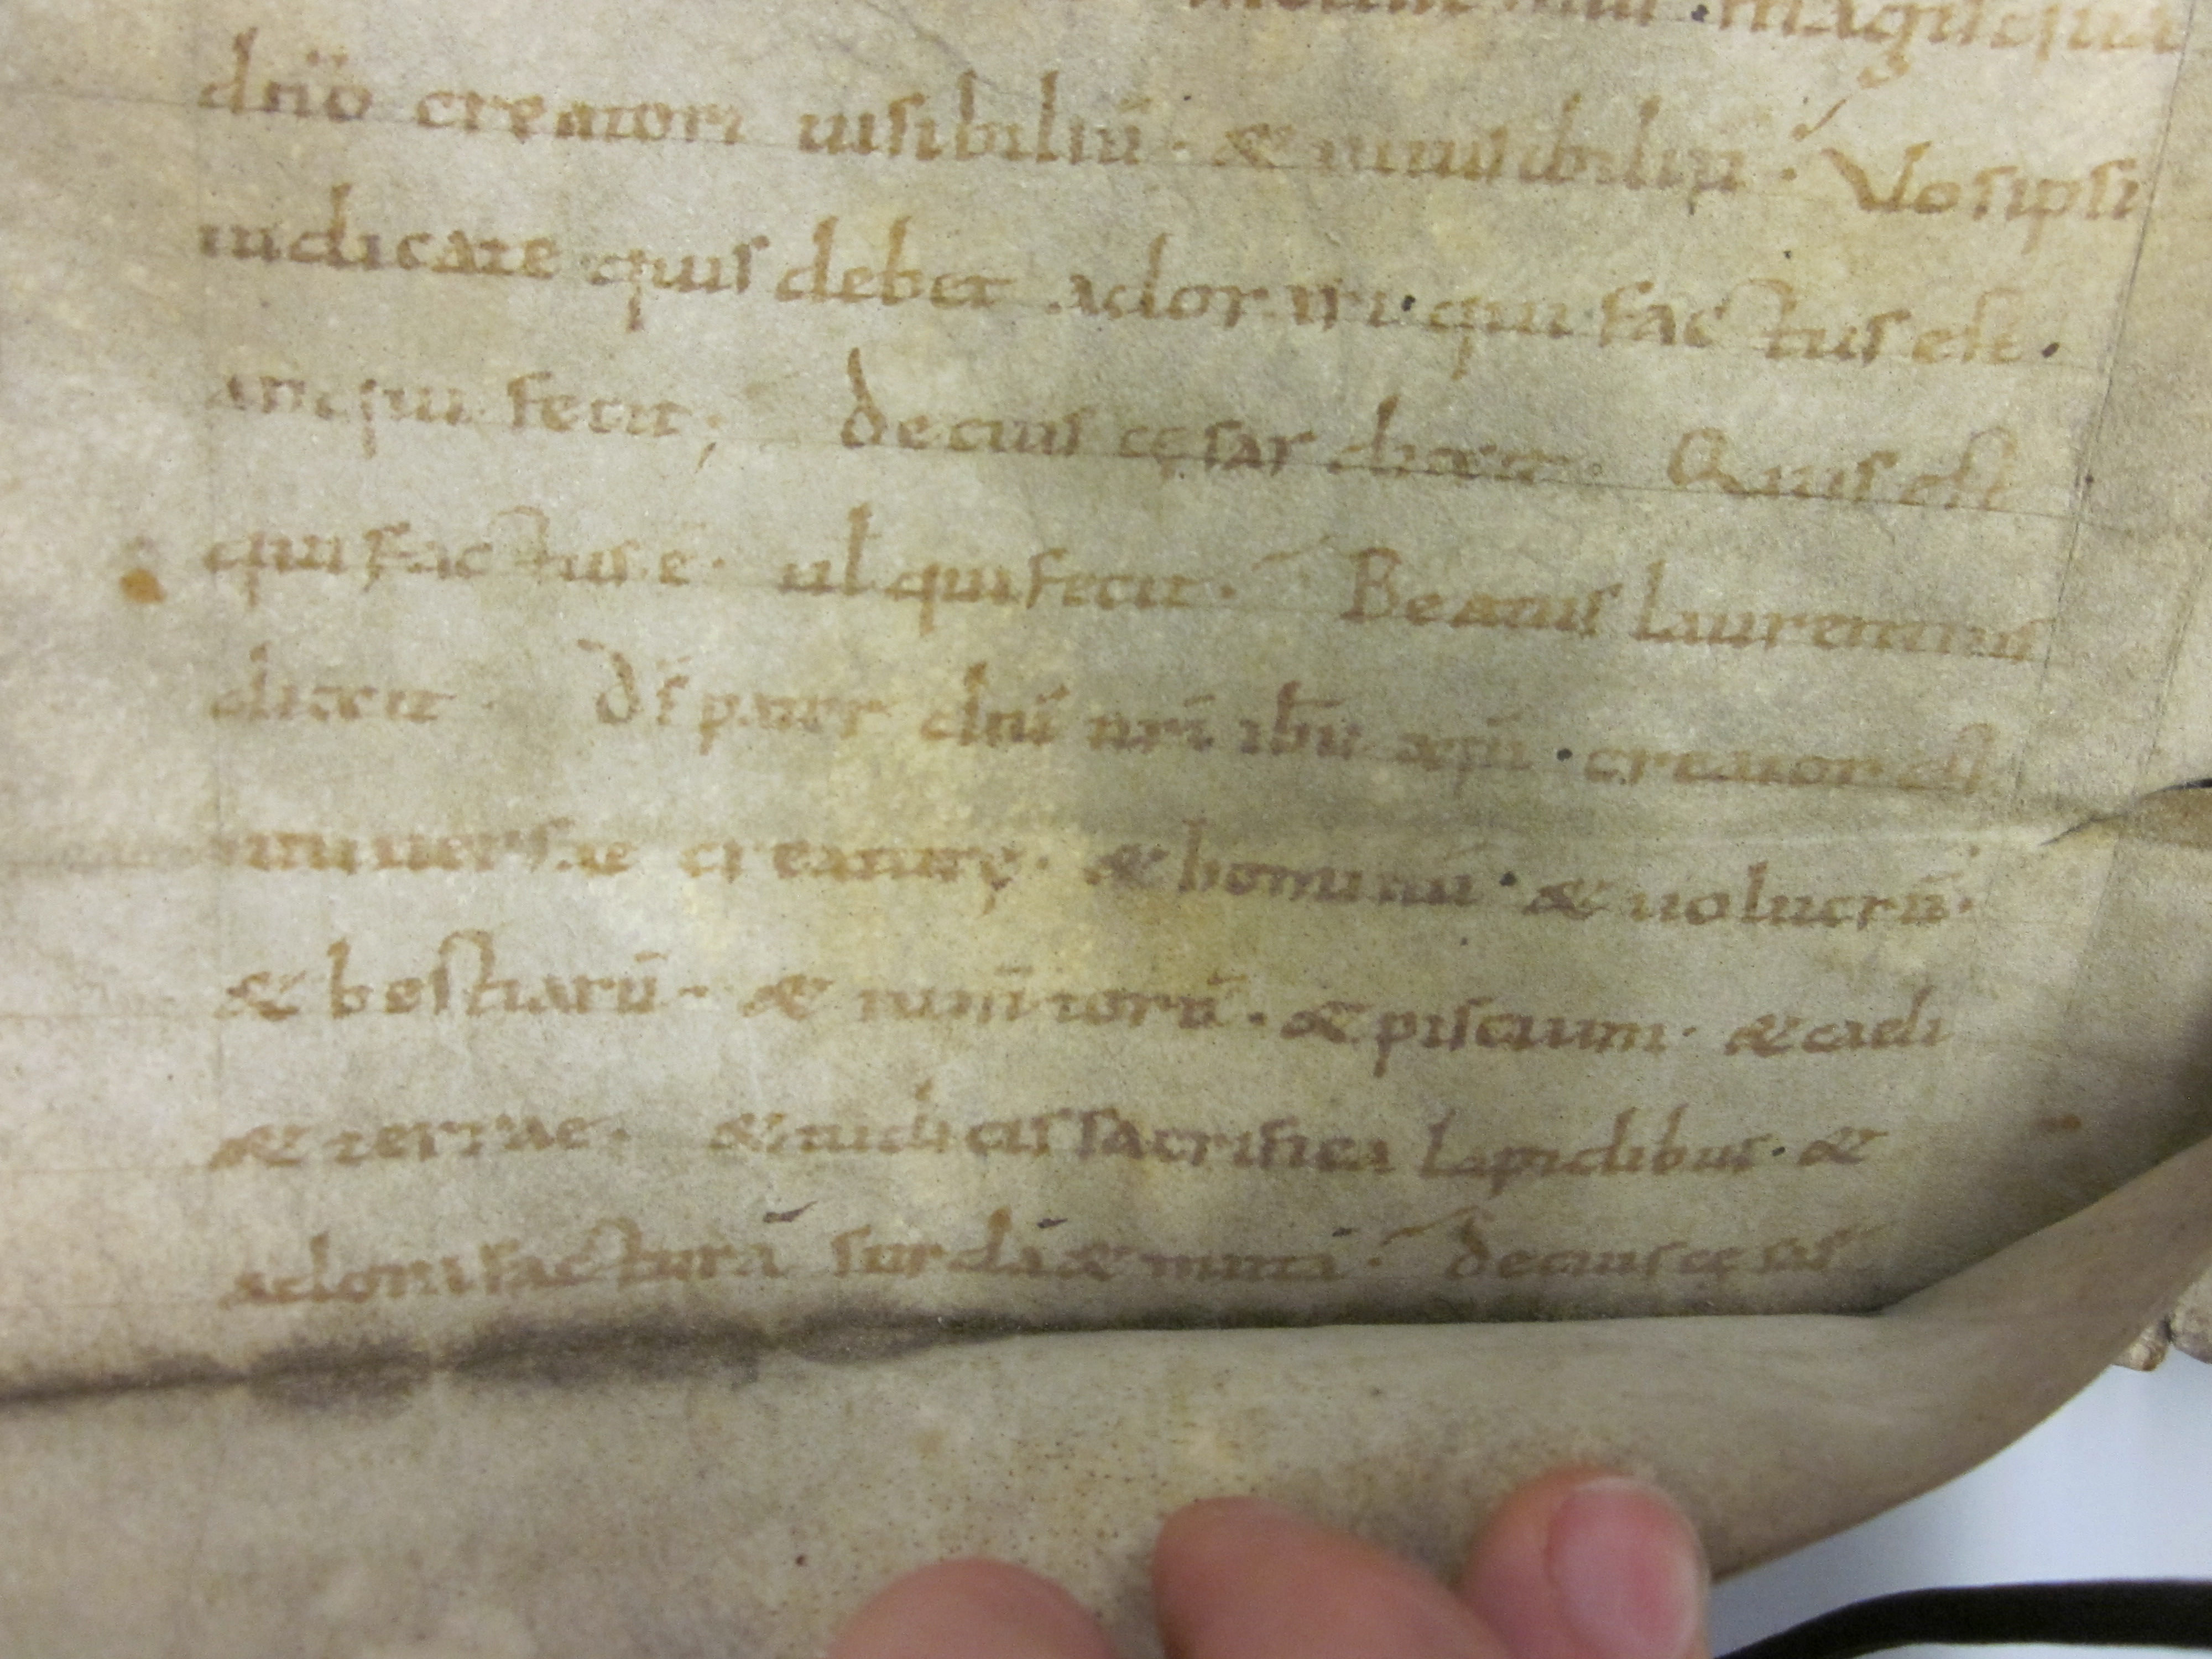 magisqua
dn̄o creatori uisibiliū · & inuisibiliū · Vosipsi
iudicate quis debet adorari · qui factus est ·
anqui fecit ; Decius cęsar dixit · Quis est
qui factus ē · ul̄ qui fecit · Beatus laurentius
dixit · Dс̄ pater dn̄i nr̄i ih̄u xp̄i · creator est
uniuersae creaturę · & hominū · & uolucrū ·
& bestiarū · & iumtorū · & piscium · & caeli
& terrae · & tu dicis sacrifica lapidibus · &
adora facturā surdā & mutā · Decius cęsar